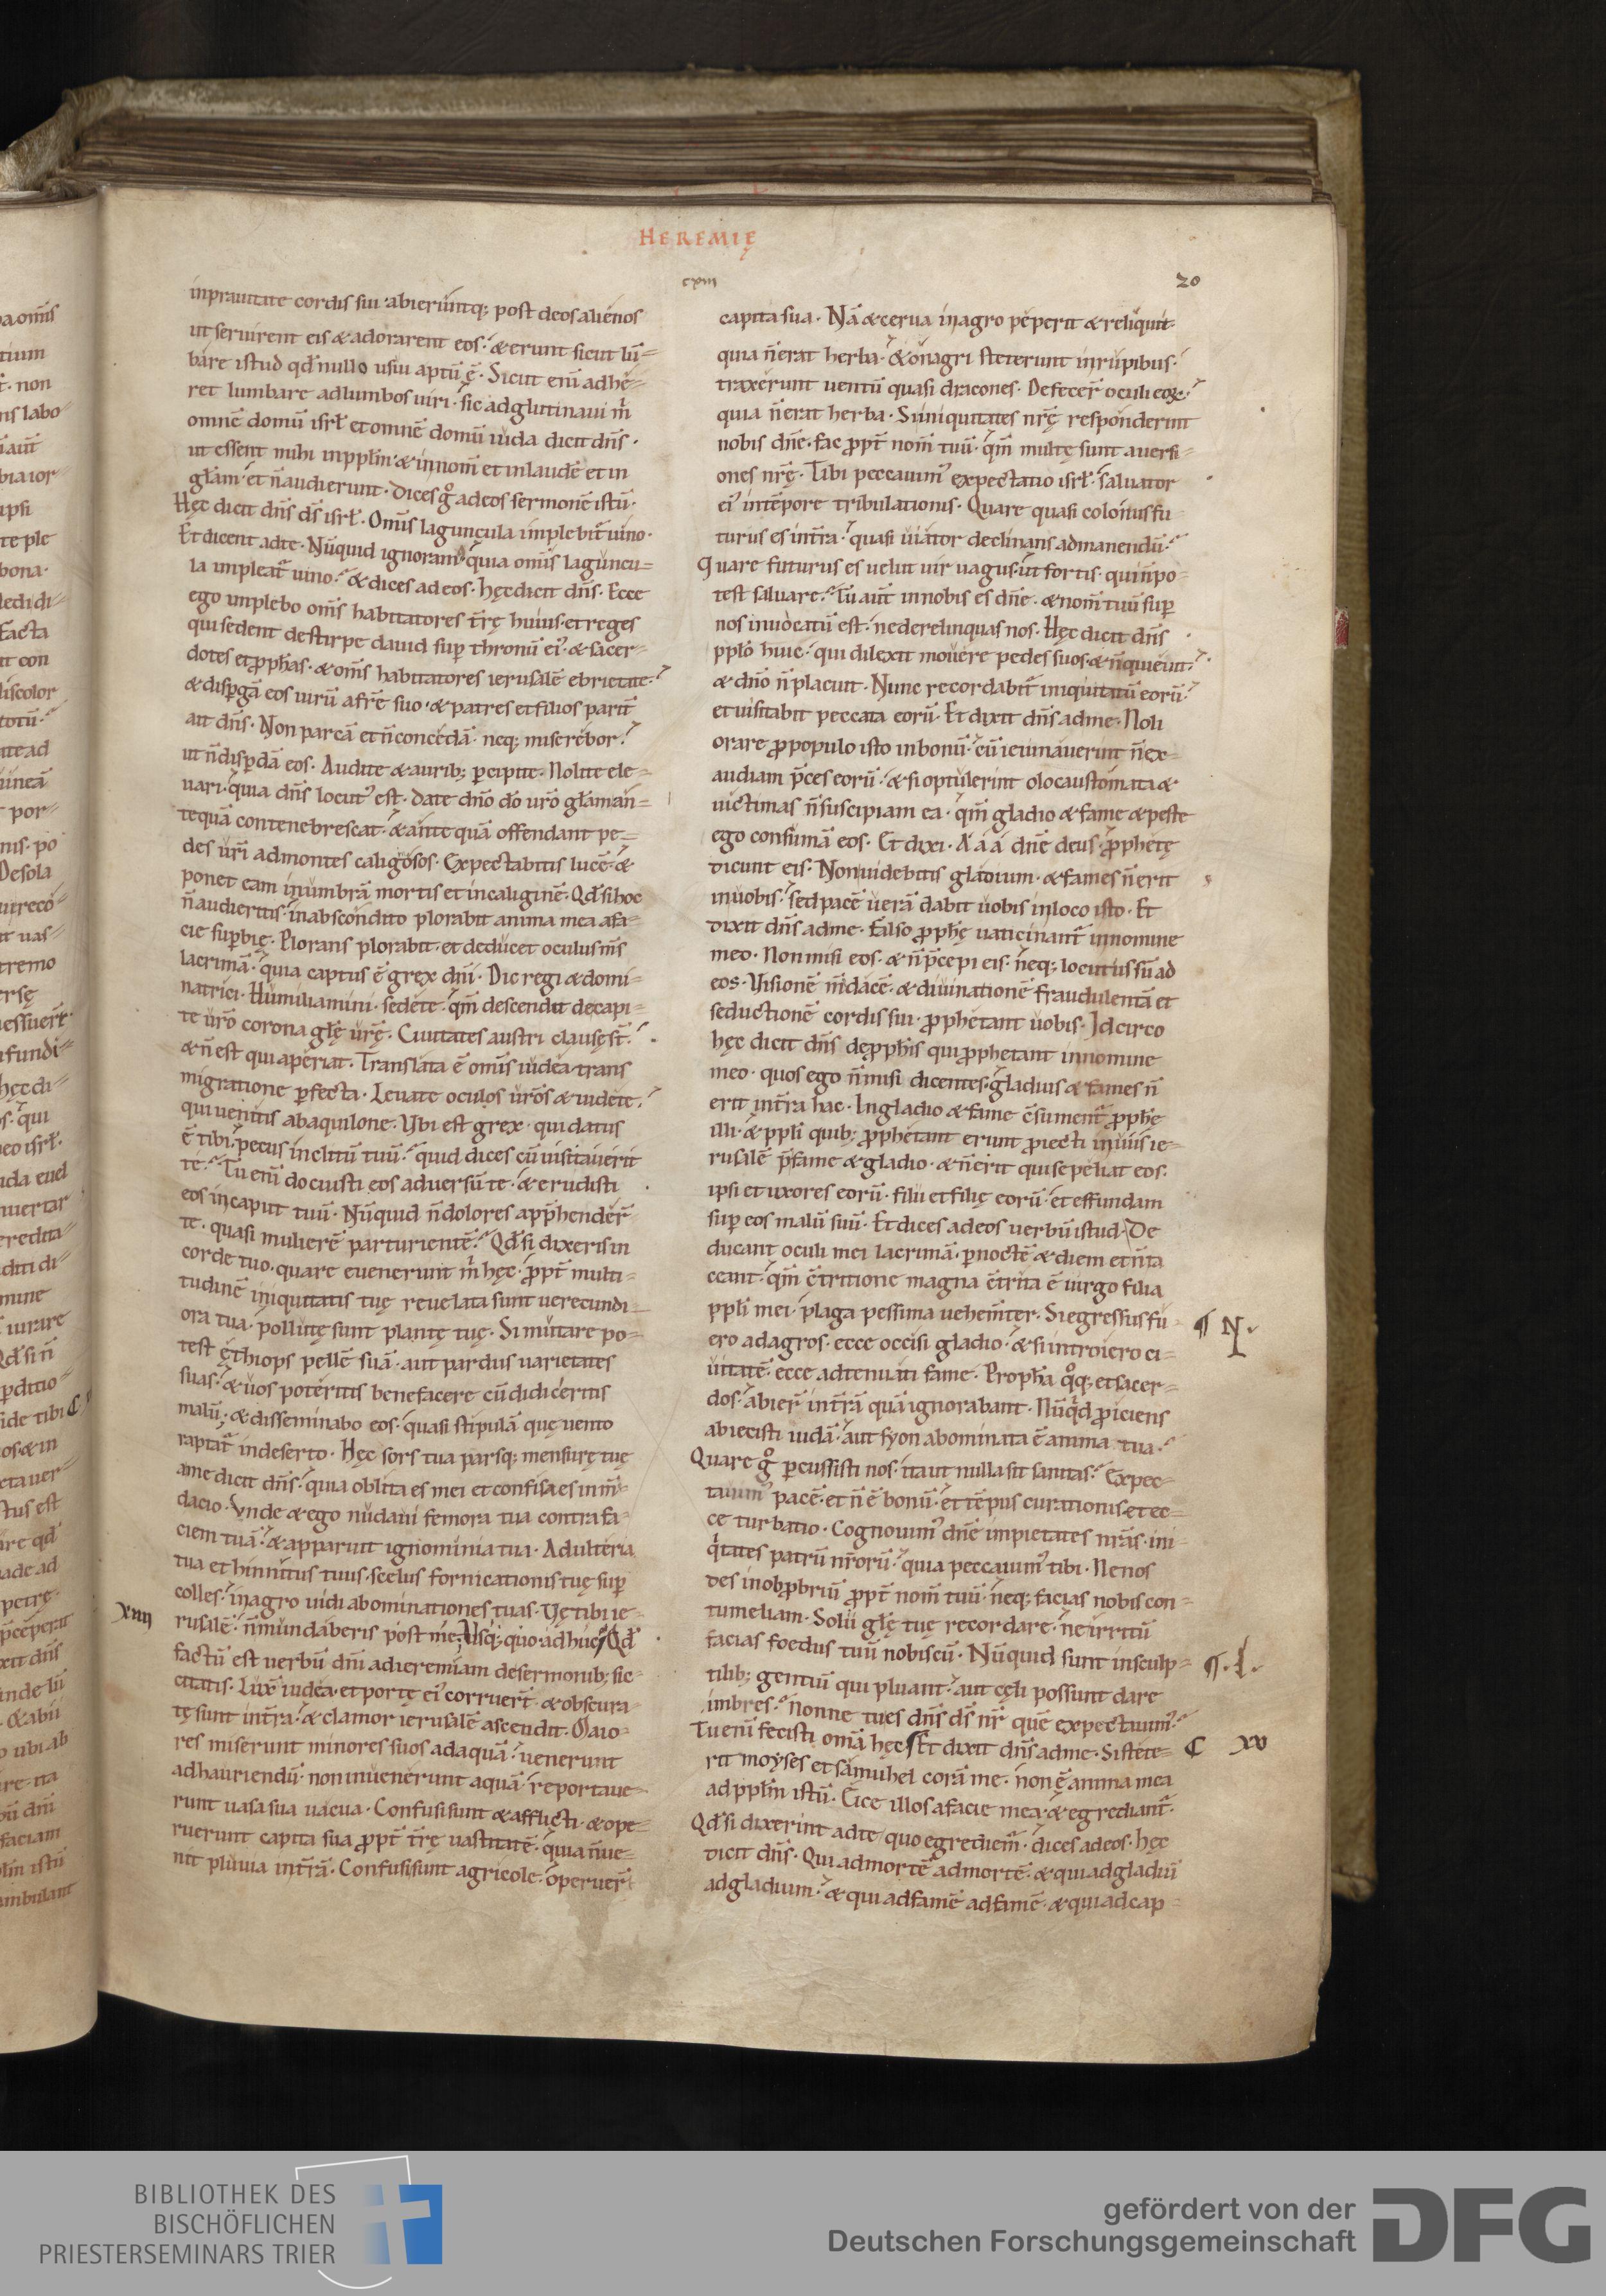 HEREMIĘ
cxiii
20
inprauitate cordis sui abieruntq; post deos alienos
ut seruirent eis & adorarent eos. & erunt sicut lū=
bare istud qđ nullo usui aptū ē. Sicut eni adhę=
ret lumbare adlumbos uiri. sic adglutinaui m̄
omnē domū isrł et omnē domū iuda dicit dn̄s.
ut essent mihi inppłm & innom̄ et inlaudē et in
głam. et n̄audierunt. Dices g̊ adeos sermonē istū.
Hęc dicit dn̄s ds̄ isrł. Omīs laguncula implebit᷑ uino.
Et dicent adte. Nūquid ignoram᷒ quia omīs laguncu=
la impleat᷑ uino. & dices adeos. hęc dicit dn̄s. Ecce
ego implebo omīs habitatores t̄rę huius. et reges
qui sedent destirpe dauid sup thronū ei᷒. & sacer=
dotes et pphas. & omīs habitatores ierusalē ebrietate.
& dispgā eos uirū afrē suo. & patres et filios parit᷑
ait dn̄s. Non parcā et n̄concedā. neq; miserebor.
ut n̄dispdā eos. Audite & aurib; pcipite. Nolite ele=
uari. quia dn̄s locut᷒ est. Date dn̄o dō ur̄o głam an=
tequā contenebrescat. & ante quā offendant pe=
des ur̄i admontes caligosos. Expectabitis lucē. &
ponet eam inumbrā mortis et incaliginē. Qđ si hoc
n̄audieritis. inabscondito plorabit anima mea afa=
cie supbię. Plorans plorabit. et deducet oculus m̄s
lacrimā. quia captus ē grex dn̄i. Dic regi & domi=
natrici. Humiliamini. sedete. qm̄ descendit decapi=
te ur̄o corona głę ur̄ę. Ciuitates austri clausę st̄.
& n̄ est qui aperiat. Translata ē omīs iudea. trans
migratione pfecta. Leuate oculos ur̄os & uidete.
qui uenitis abaquilone. Vbi est grex. qui datus
ē tibi. pecus inclitū tuū. quid dices cū uisitauerit
te. Tu enī docuisti eos aduersū te. & erudisti
eos incaput tuū. Nūquid n̄dolores appħender̄
te. quasi mulierē parturientē. Qđ si dixeris in
corde tuo. quare euenerunt m̄ hęc. ppt̄ multi=
tudinē iniquitatis tuę reuelata sunt uerecundi=
ora tua. pollutę sunt plantę tuę. Si mutare po=
test ęthiops pellē suā. aut pardus uarietates
suas. & uos poteritis benefacere cū didiceritis
malū. & disseminabo eos. quasi stipulā quę uento
raptat᷑ indeserto. Hęc sors tua parsq; mensurę tuę
ame dicit dn̄s. quia oblita es mei et confisa es in m̄=
dacio. Vnde & ego nudaui femora tua contra fa=
ciem tuā. & apparuit ignominia tua. Adulteria
tua et hinnitus tuus. scelus fornicationis tuę sup
colles. inagro uidi abominationes tuas. Vę tibi ie=
xiiii
rusalē. n̄mundaberis post me. Vsq; quo adhuc. Qđ
factū est uerbū dn̄i adieremiam desermonib; sic=
citatis. Luxē iudea. et portę ei᷒ corruer̄t. & obscura=
tę sunt int̄ra. & clamor ierusalē ascendit. Maio=
res miserunt minores suos adaquā. uenerunt
adhauriendū. non inuenerunt aquā. reportaue=
runt uasa sua uacua. Confusi sunt & afflicti. & ope=
ruerunt capita sua ppt̄ t̄rę uastitatē. quia n̄ue=
nit pluuia int̄rā. Confusi sunt agricole. operuer̄
capita sua. Nā & cerua inagro peperit & reliquit.
quia n̄erat herba. & onagri steterunt inrupibus.
traxerunt uentū quasi dracones. Defecer̄ oculi eoꝝ.
quia n̄erat herba. Si iniquitates nr̄ę responderint
nobis dn̄e. fac ppt̄ nom̄ tuū. qm̄ multę sunt auersi=
ones nr̄ę. Tibi peccauim᷒ expectatio isrł. saluator
ei᷒ intēpore tribulationis. Quare quasi colonus fu=
turus es int̄ra. quasi uiator declinans admanendū.
Quare futurus es uelut uir uagus. ut fortis. qui n̄po=
test saluare. Tu aut̄ innobis es dn̄e. & nom̄ tuū sup
nos inuocatū est. ne derelinquas nos. Hęc dicit dn̄s
ppło huic. qui dilexit mouere pedes suos. & n̄quieuit.
& dn̄o n̄placuit. Nunc recordabit᷑ iniquitatū eorū.
et uisitabit peccata eorū. Et dixit dn̄s adme. Noli
orare ppopulo isto inbonū. cū ieiunauerint n̄ex=
audiam p̄ces eorū. & si optulerint olocaustomata &
uictimas n̄suscipiam ea. qm̄ gladio & fame & peste
ego consumā eos. Et dixi. A a a dn̄e deus. pphetę
dicunt eis. Non uidebitis gladium. & fames n̄erit
inuobis. sed pacē uerā dabit uobis inloco isto. Et
dixit dn̄s adme. Falso pphę uaticinant᷑ innomine
meo. Non misi eos. & n̄p̄cepi eis. neq; locutus sū ad
eos. Visionē m̄dacē. & diuinationē fraudulentā et
seductionē cordis sui. pphetant uobis. Idcirco
hęc dicit dn̄s depphis qui pphetant innomine
meo. quos ego n̄misi dicentes. gladius & fames n̄
erit int̄ra hac. Ingladio & fame c̄sument᷑ pphę
illi. & ppłi quib; pphetant erunt piecti inuiis ie=
rusalē p̄fame & gladio. & n̄erit qui sepeliat eos.
ipsi et uxores eorū. filii et filię eorū. et effundam
sup eos malū suū. Et dices adeos uerbū istud. De
ducant oculi mei lacrimā. pnoctē & diem et n̄ta
ceant. qm̄ c̄tritione magna c̄trita ē uirgo filia
ppłi mei. plaga pessima uehem̄ter. Si egressus fu=
¶ N.
ero adagros. ecce occisi gladio. & si introiero ci=
uitatē. ecce adtenuati fame. Propha q̊q; et sacer=
dos. abier̄ int̄rā quā ignorabant. Nūqd piciens
abiecisti iudā. aut syon abominata ē anima tua.
Quare g̊ pcussisti nos. ita ut nulla sit sanitas. Expec=
tauim᷒ pacē. et n̄ ē bonū. et tēpus curationis. et ec=
ce turbatio. Cognouim᷒ dn̄e impietates nr̄as. ini=
qitates patrū nr̄orū. quia peccauim᷒ tibi. Ne nos
des inobprobriū ppt̄ nom̄ tuū. neq; facias nobis con=
tumeliam. Solii głę tuę recordare. ne irritū
facias foedus tuū nobiscū. Nūquid sunt insculp=
¶. I.
tilib; gentiū qui pluant. aut cęli possunt dare
imbres. Nonne tu es dn̄s ds̄ nr̄ quē expectauim᷒.
Tu enī fecisti omīa hęc. Et dixit dn̄s adme. Si stete=
C xv
rit moyses et samuhel corā me. non ē anima mea
adppłm istū. Eice illos afacie mea. & egrediant᷑.
Qđ si dixerint adte quo egrediem᷑. dices adeos. hęc
dicit dn̄s. Qui admortē admortē. & qui adgladiū
adgladium. & qui adfamē adfamē. & qui adcap=
BIBLIOTHEK DES
BISCHÖFLICHEN
PRIESTERSEMINARS TRIER
gefördert von der
Deutschen Forschungsgemeinschaft
DFG